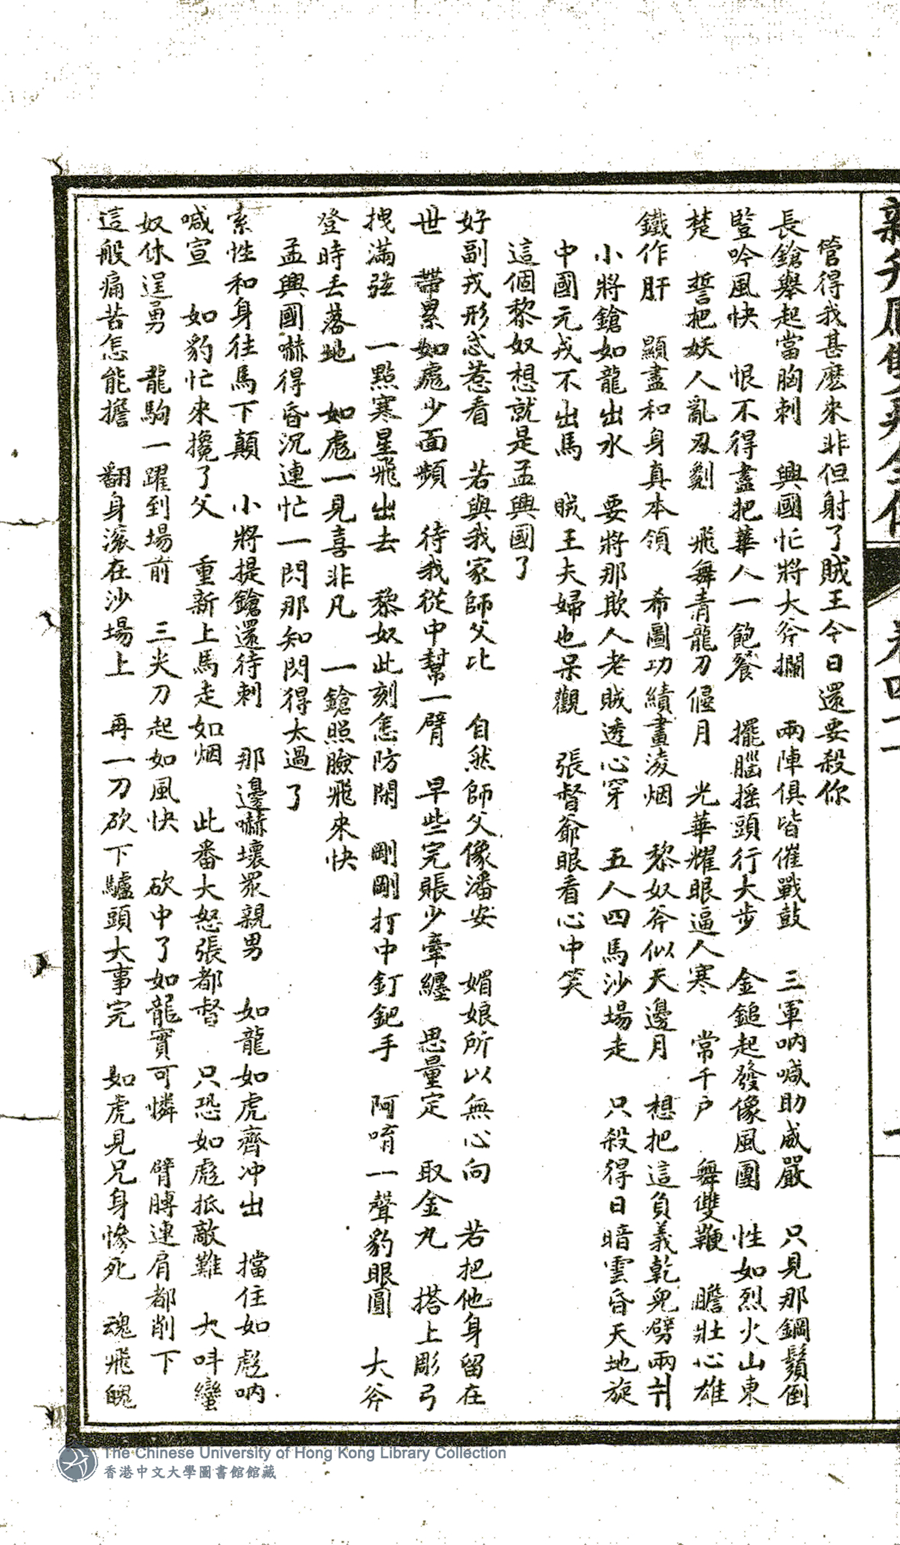 管得我甚麽來非但射了賊王今日還要殺你
長鎗舉起當胸刺　興國忙將大斧攔　兩陣俱皆催戰鼓　三軍吶喊助威嚴　只見那鋼鬚倒
豎吟風快　恨不得盡把華人一飽餐　擺腦搖頭行大步　金鎚起發像風團　性如烈火山東
楚　誓把妖人亂刄劖　飛舞青龍刀偃月　光華耀眼逼人寒　常千户　舞雙鞭　膽壯心雄
鐵作肝　顯盡和身真本領　希圖功績畫淩烟　黎奴斧似天邊月　想把這負義乾兒劈兩爿
小將鎗如龍出水　要將那欺人老賊透心穿　五人四馬沙場走　只殺得日暗雲昏天地旋
中國元戎不出馬　賊王夫婦也呆觀　張督爺眼看心中笑
這個黎奴想就是孟興國了
好副戎形忒惹看　若與我家師父比　自然師父像潘安　媚娘所以無心向　若把他身留在
世　帶累如彪少面頰　待我從中幫一臂　早些完賬少牽纏　思量定　取金丸　搭上彫弓
拽滿弦　一點寒星飛出去　黎奴此刻怎防閑　剛剛打中釘鈀手　阿唷一聲豹眼圓　大斧
登時丟落地　如彪一見喜非凡　一鎗照臉飛來快
孟興國嚇得昏沉連忙一閃那知閃得太過了
索性和身往馬下顛　小將提鎗還待刺　那邊嚇壞眾親男　如龍如虎齊冲出　擋住如彪吶
喊宣　如豹忙來攙了父　重新上馬走如烟　此番大怒張都督　只恐如彪抵敵難　大呌蠻
奴休逞勇　龍駒一躍到場前　三尖刀起如風快　砍中了如龍實可憐　臂膊連肩都削下
這般痛苦怎能擔　翻身滚在沙場上　再一刀砍下驢頭大事完　如虎見兄身慘死　魂飛魄
The Chinese University of Hong Kong Library Collection
香港中文大學圖書館館藏